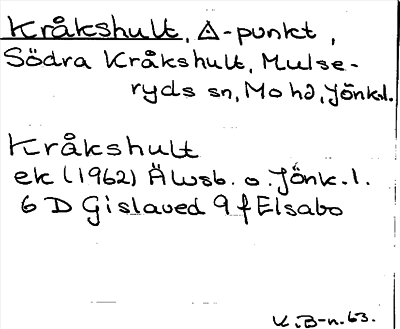 Kråkshult, △-punkt,
Södra Kråkshult, Mulse-
ryds sn, Mo hd, Jönk.l.
Kråkshult
ek (1962) Älvsb. o. Jönk.l.
6 D Gislaved 9 f Elsabo
K.B-n.63.